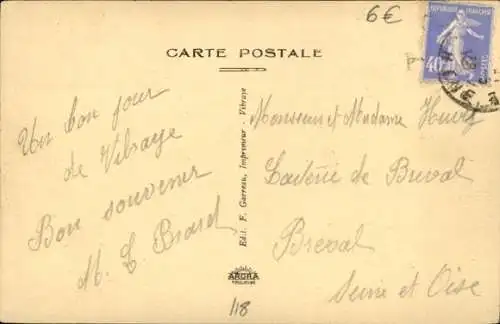 6€
CARTE POSTALE
REPUBLIQUE FRANÇAISE
40
Un bon jour
de Vibraye
Bon souvenir
M. C. Brard
Edit. F. Garreau, Imprimeur - Vibraye
Monsieur et Madame Henry
Laiterie de Breval
Bréval
Seine et Oise
ARORA
118